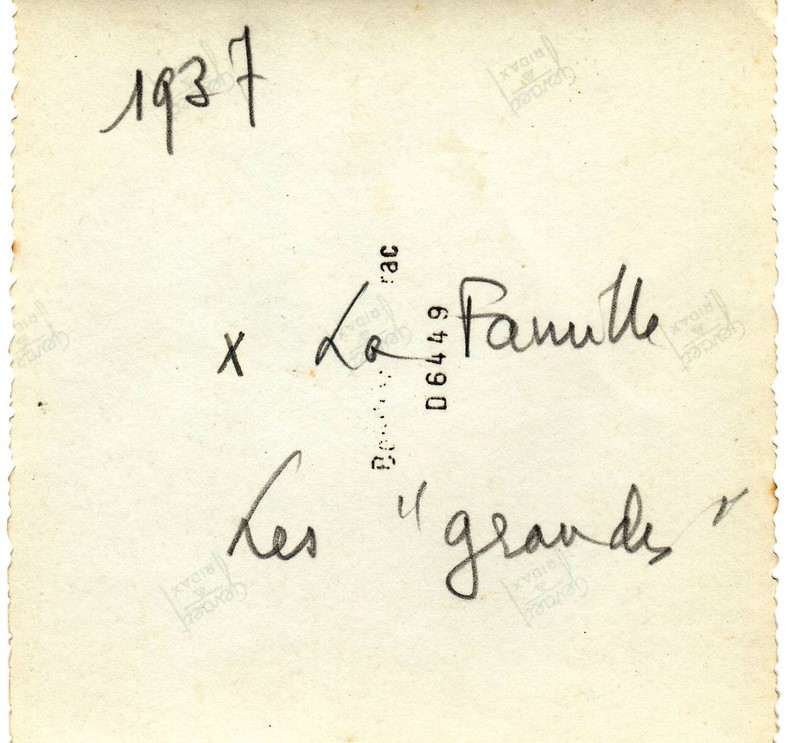 1937
x La Famille
Les "grands"
rac
D6449
Gevaert
RIDAX
Gevaert
RIDAX
Gevaert
RIDAX
Gevaert
RIDAX
Gevaert
RIDAX
Gevaert
RIDAX
Gevaert
RIDAX